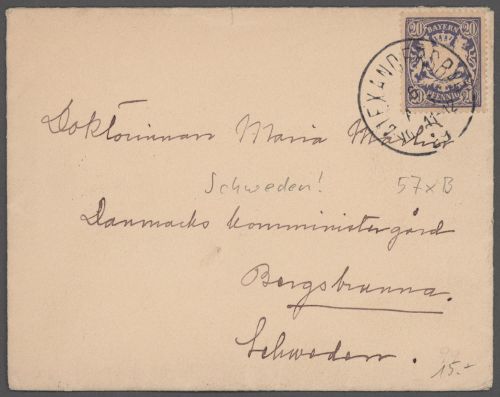 20 BAYERN 20
20 PFENNIG 20
Doktorinnan Maria
Schweden! 57xB
Danmarks komministergård
Bergsbrunna.
Schweden.
15.-